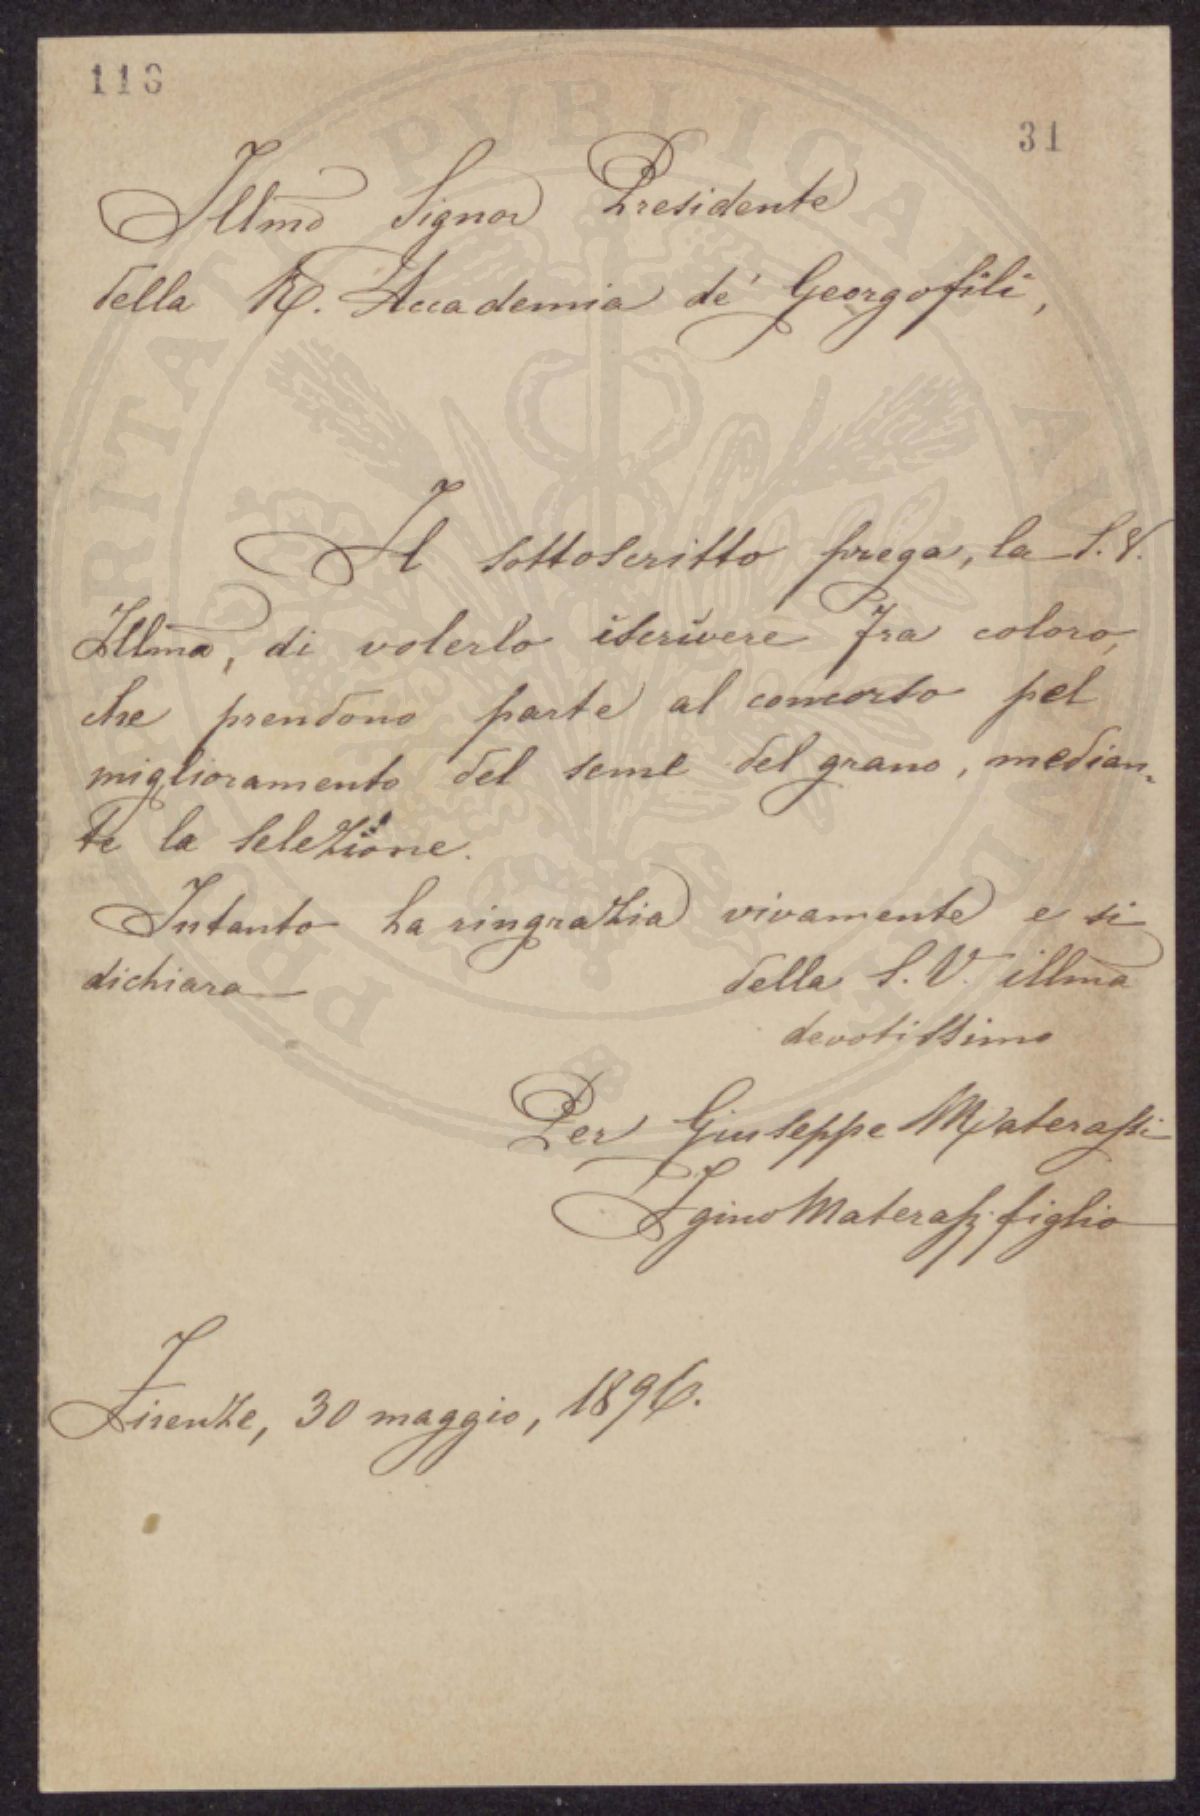 113
31
Illmo Signor Presidente
della R. Accademia de' Georgofili,
Il sottoscritto prega, la S. V.
Illma, di volerlo iscrivere fra coloro,
che prendono parte al concorso pel
miglioramento del seme del grano, median-
te la selezione.
Intanto La ringrazia vivamente e si
dichiara della S. V. illma
devotissimo
Per Giuseppe Materassi
Igino Materassi figlio
Firenze, 30 maggio, 1896.